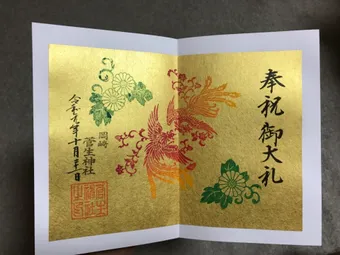 奉祝御大礼
岡崎
菅生神社
令和元年十月二十二日